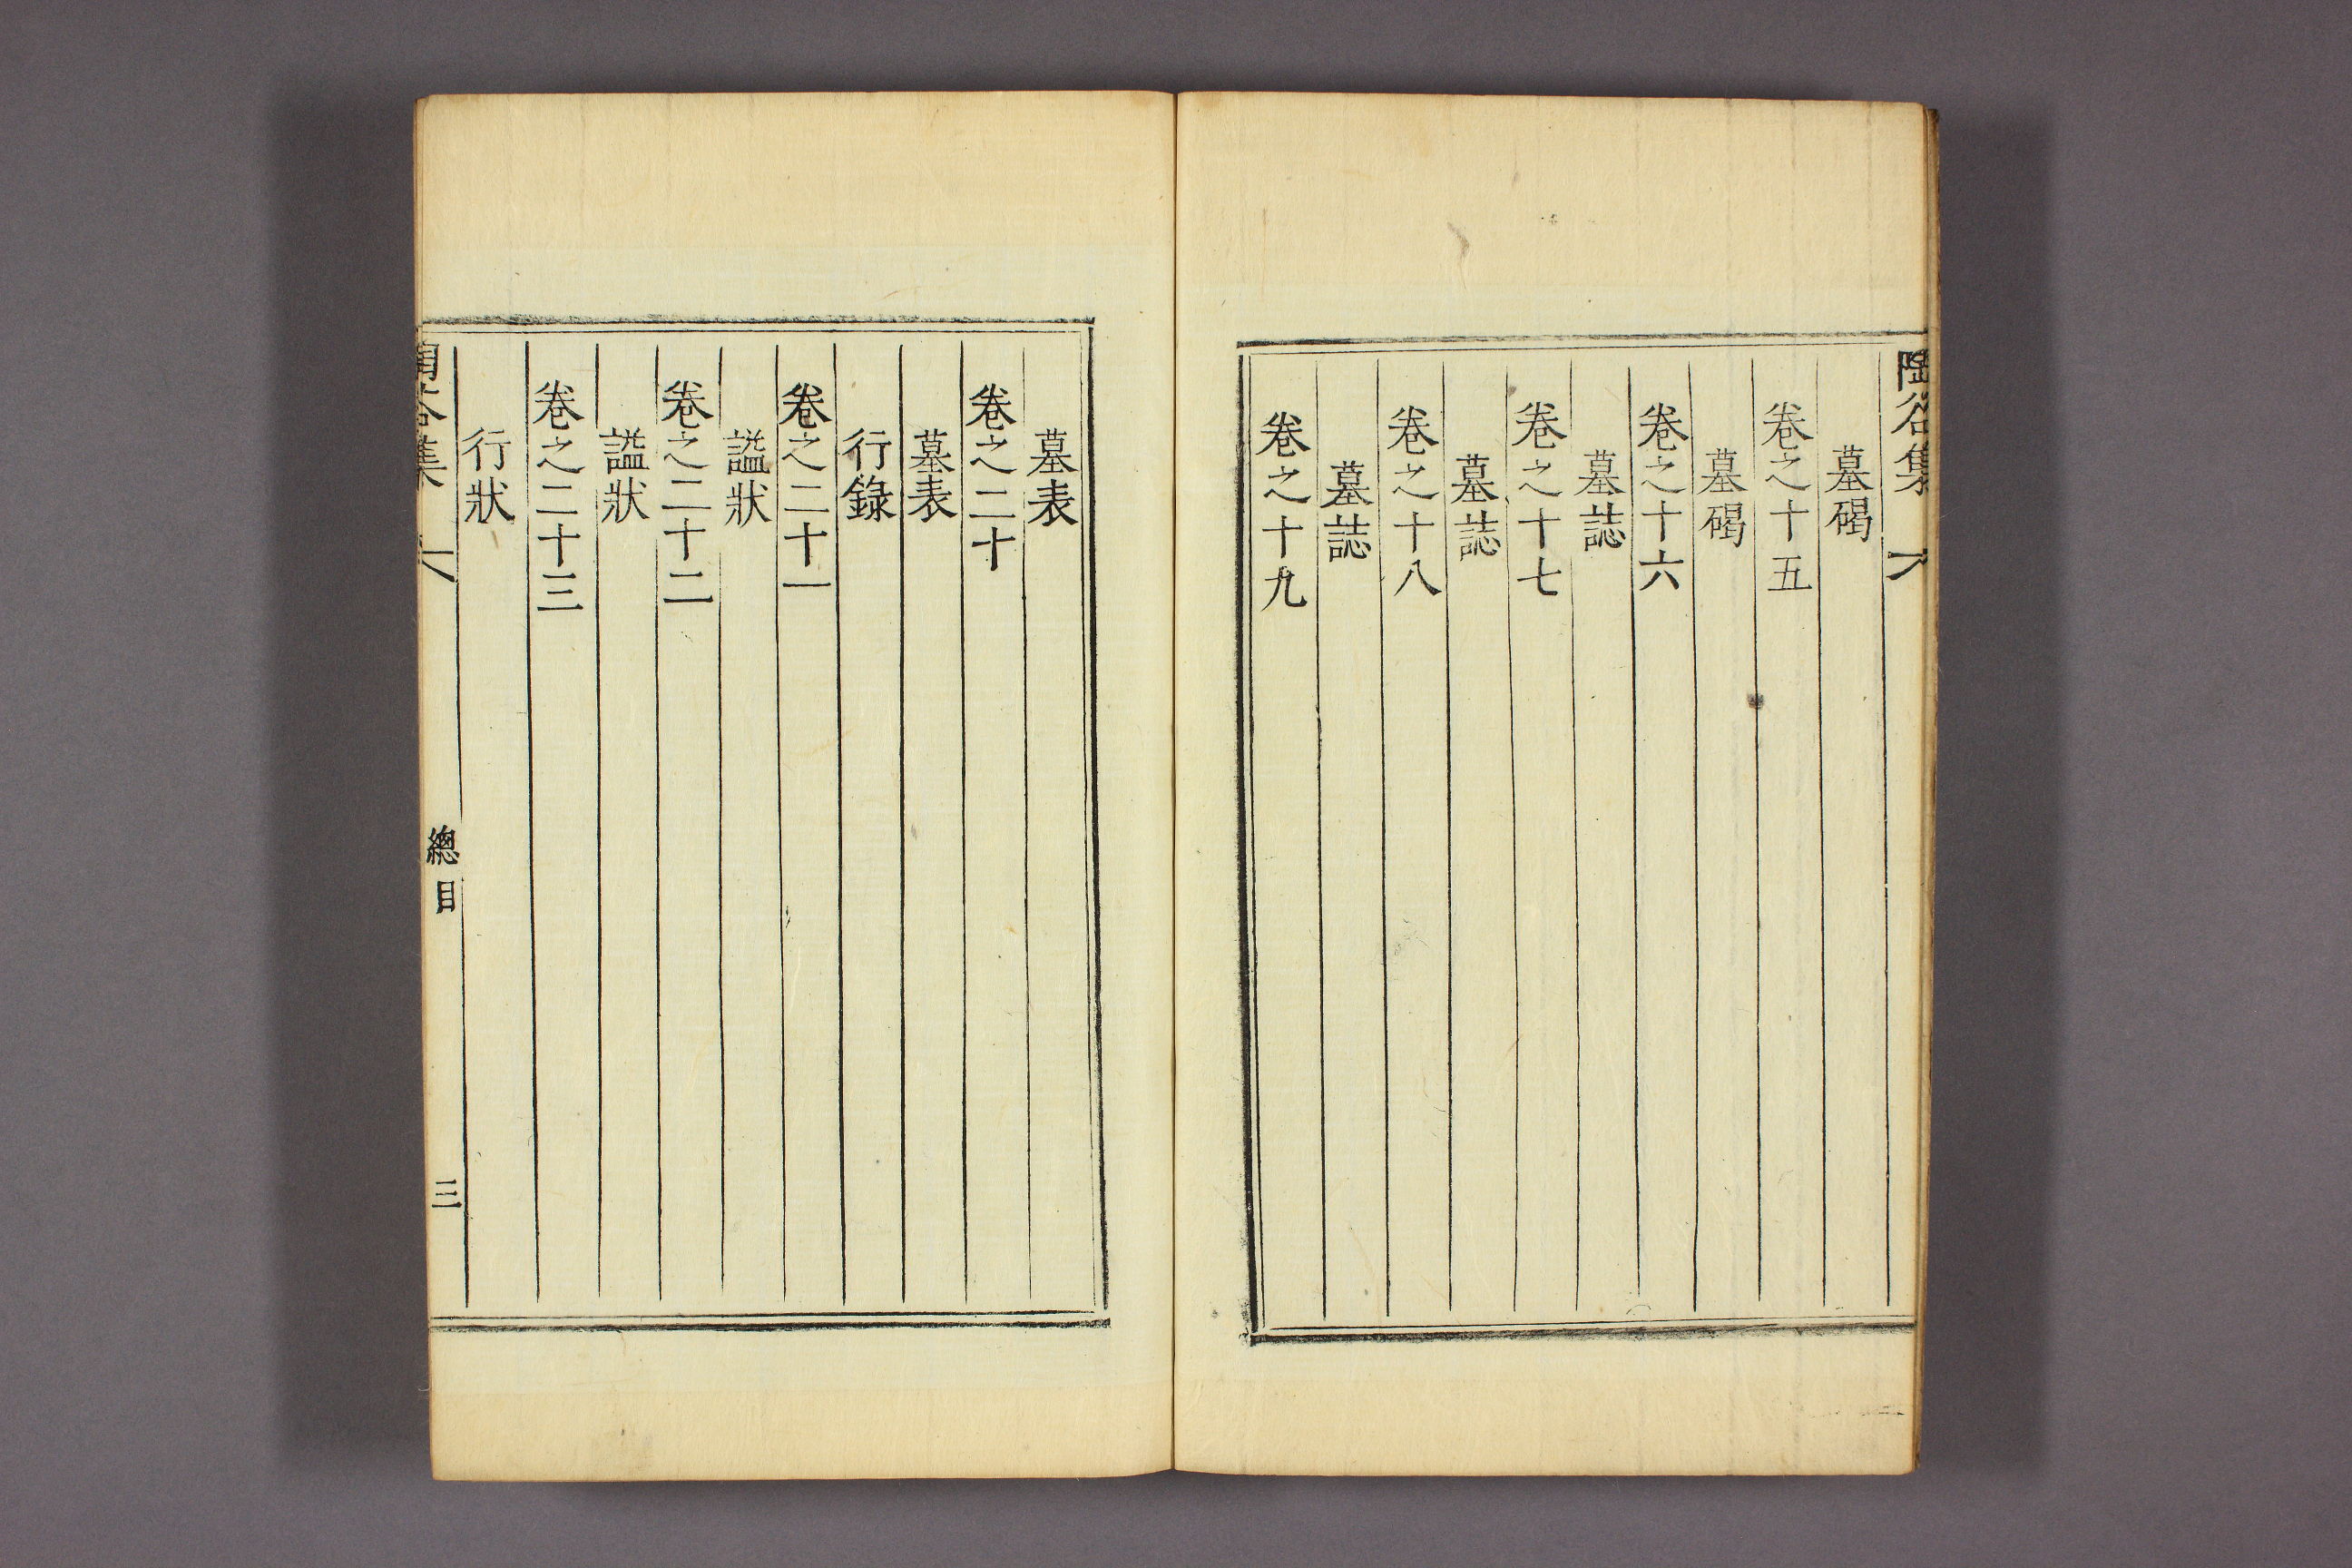 陶谷集
墓碣
卷之十五
墓碣
卷之十六
墓誌
卷之十七
墓誌
卷之十八
墓誌
卷之十九
墓表
卷之二十
墓表
行錄
卷之二十一
諡狀
卷之二十二
諡狀
卷之二十三
行狀
陶谷集
總目
三